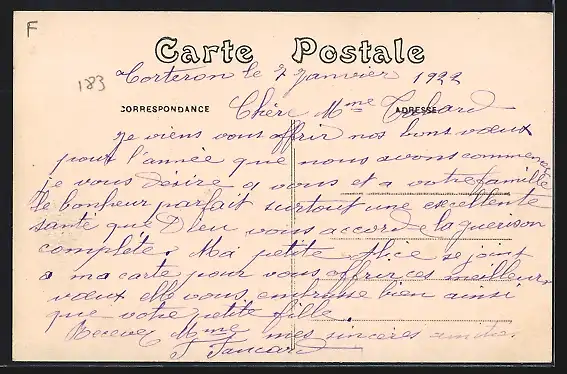 F
Carte Postale
183
Corteron le 7 Janvier 1922
CORRESPONDANCE
ADRESSE
Chère Mme
Je viens vous offrir nos bons vœux
pour l'année que nous avons commencer
je vous désire a vous et a votre famille
le bonheur parfait surtout une excellente
santé que Dieu vous accorde la guérison
complète. Ma petite Alice se joint
a ma carte pour vous offrir ces meilleurs
vœux elle vous embrasse bien ainsi
que votre petite fille.
Recevez Mme mes sincères amitiés